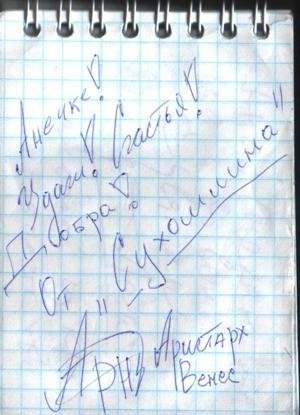 Анечке!
Удачи! Счастья!
Добра!
От "Сухомлина"
АРНВ Аристарх
Венес